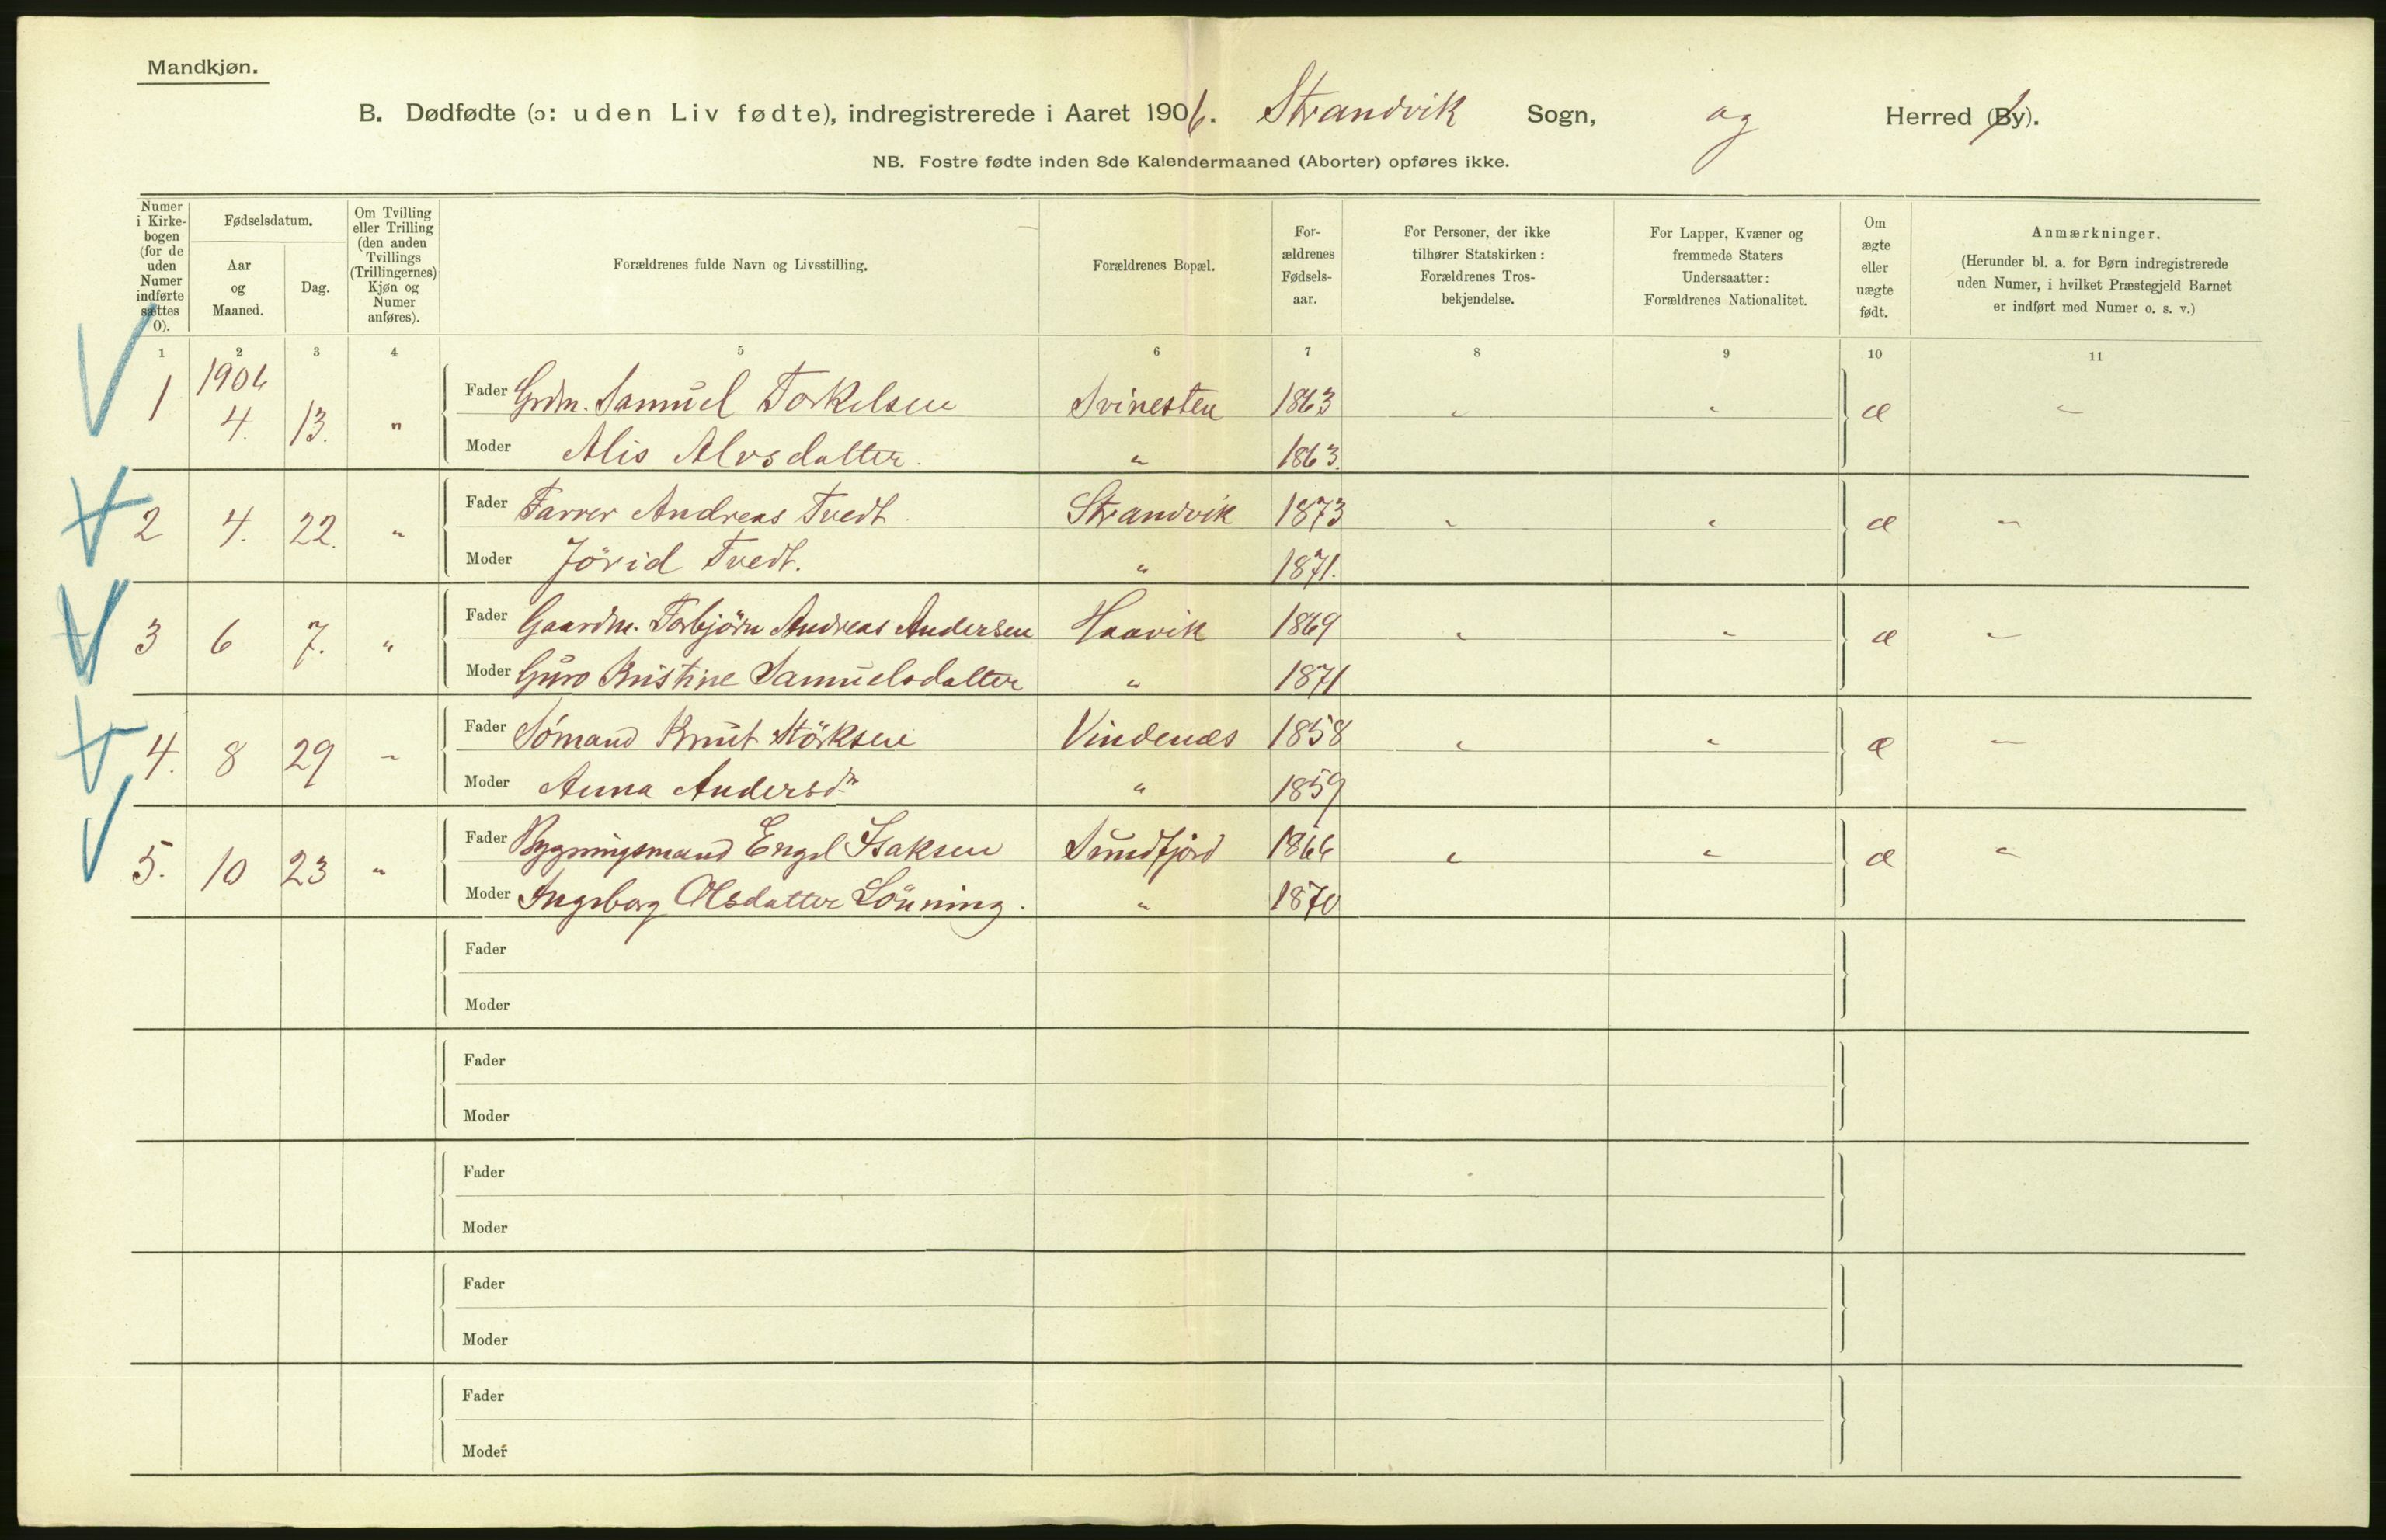 Mandkjøn.
B. Dødfødte (ɔ: uden Liv fødte), indregistrerede i Aaret 1906. Strandvik Sogn, og Herred (By).
NB. Fostre fødte inden 8de Kalendermaaned (Aborter) opføres ikke.
Numer i Kirke-bogen (for de uden Numer indførte sættes 0).
Fødselsdatum.
Aar og Maaned.
Dag.
Om Tvilling eller Trilling (den anden Tvillings (Trillingernes) Kjøn og Numer anføres).
Forældrenes fulde Navn og Livsstilling.
Forældrenes Bopæl.
For-ældrenes Fødsels-aar.
For Personer, der ikke tilhører Statskirken: Forældrenes Tros-bekjendelse.
For Lapper, Kvæner og fremmede Staters Undersaatter: Forældrenes Nationalitet.
Om ægte eller uægte født.
Anmærkninger.
(Herunder bl. a. for Børn indregistrerede uden Numer, i hvilket Præstegjeld Barnet er indført med Numer o. s. v.)
1 2 3 4 5 6 7 8 9 10 11
1906
1 4. 13. " Fader Grdm. Samuel Torkelsen Svinesten 1863 " " æ "
Moder Alis Alvsdatter. " 1863.
2 4. 22. " Fader Farver Andreas Tvedt. Strandvik 1873 " " æ "
Moder Jörid Tvedt. " 1871.
3 6 7. " Fader Gaardm. Torbjörn Andreas Andersen Haavik 1869 " " æ "
Moder Guro Kristine Samuelsdatter " 1871
4. 8 29 " Fader Sömand Knut Störksen Vindenes 1858 " " æ "
Moder Anna Andersdtr " 1859
5. 10 23 " Fader Bygningsmand Engel Isaksen Sundfjord 1866 " " æ "
Moder Ingeborg Olsdatter Lönning. " 1870
Fader
Moder
Fader
Moder
Fader
Moder
Fader
Moder
Fader
Moder